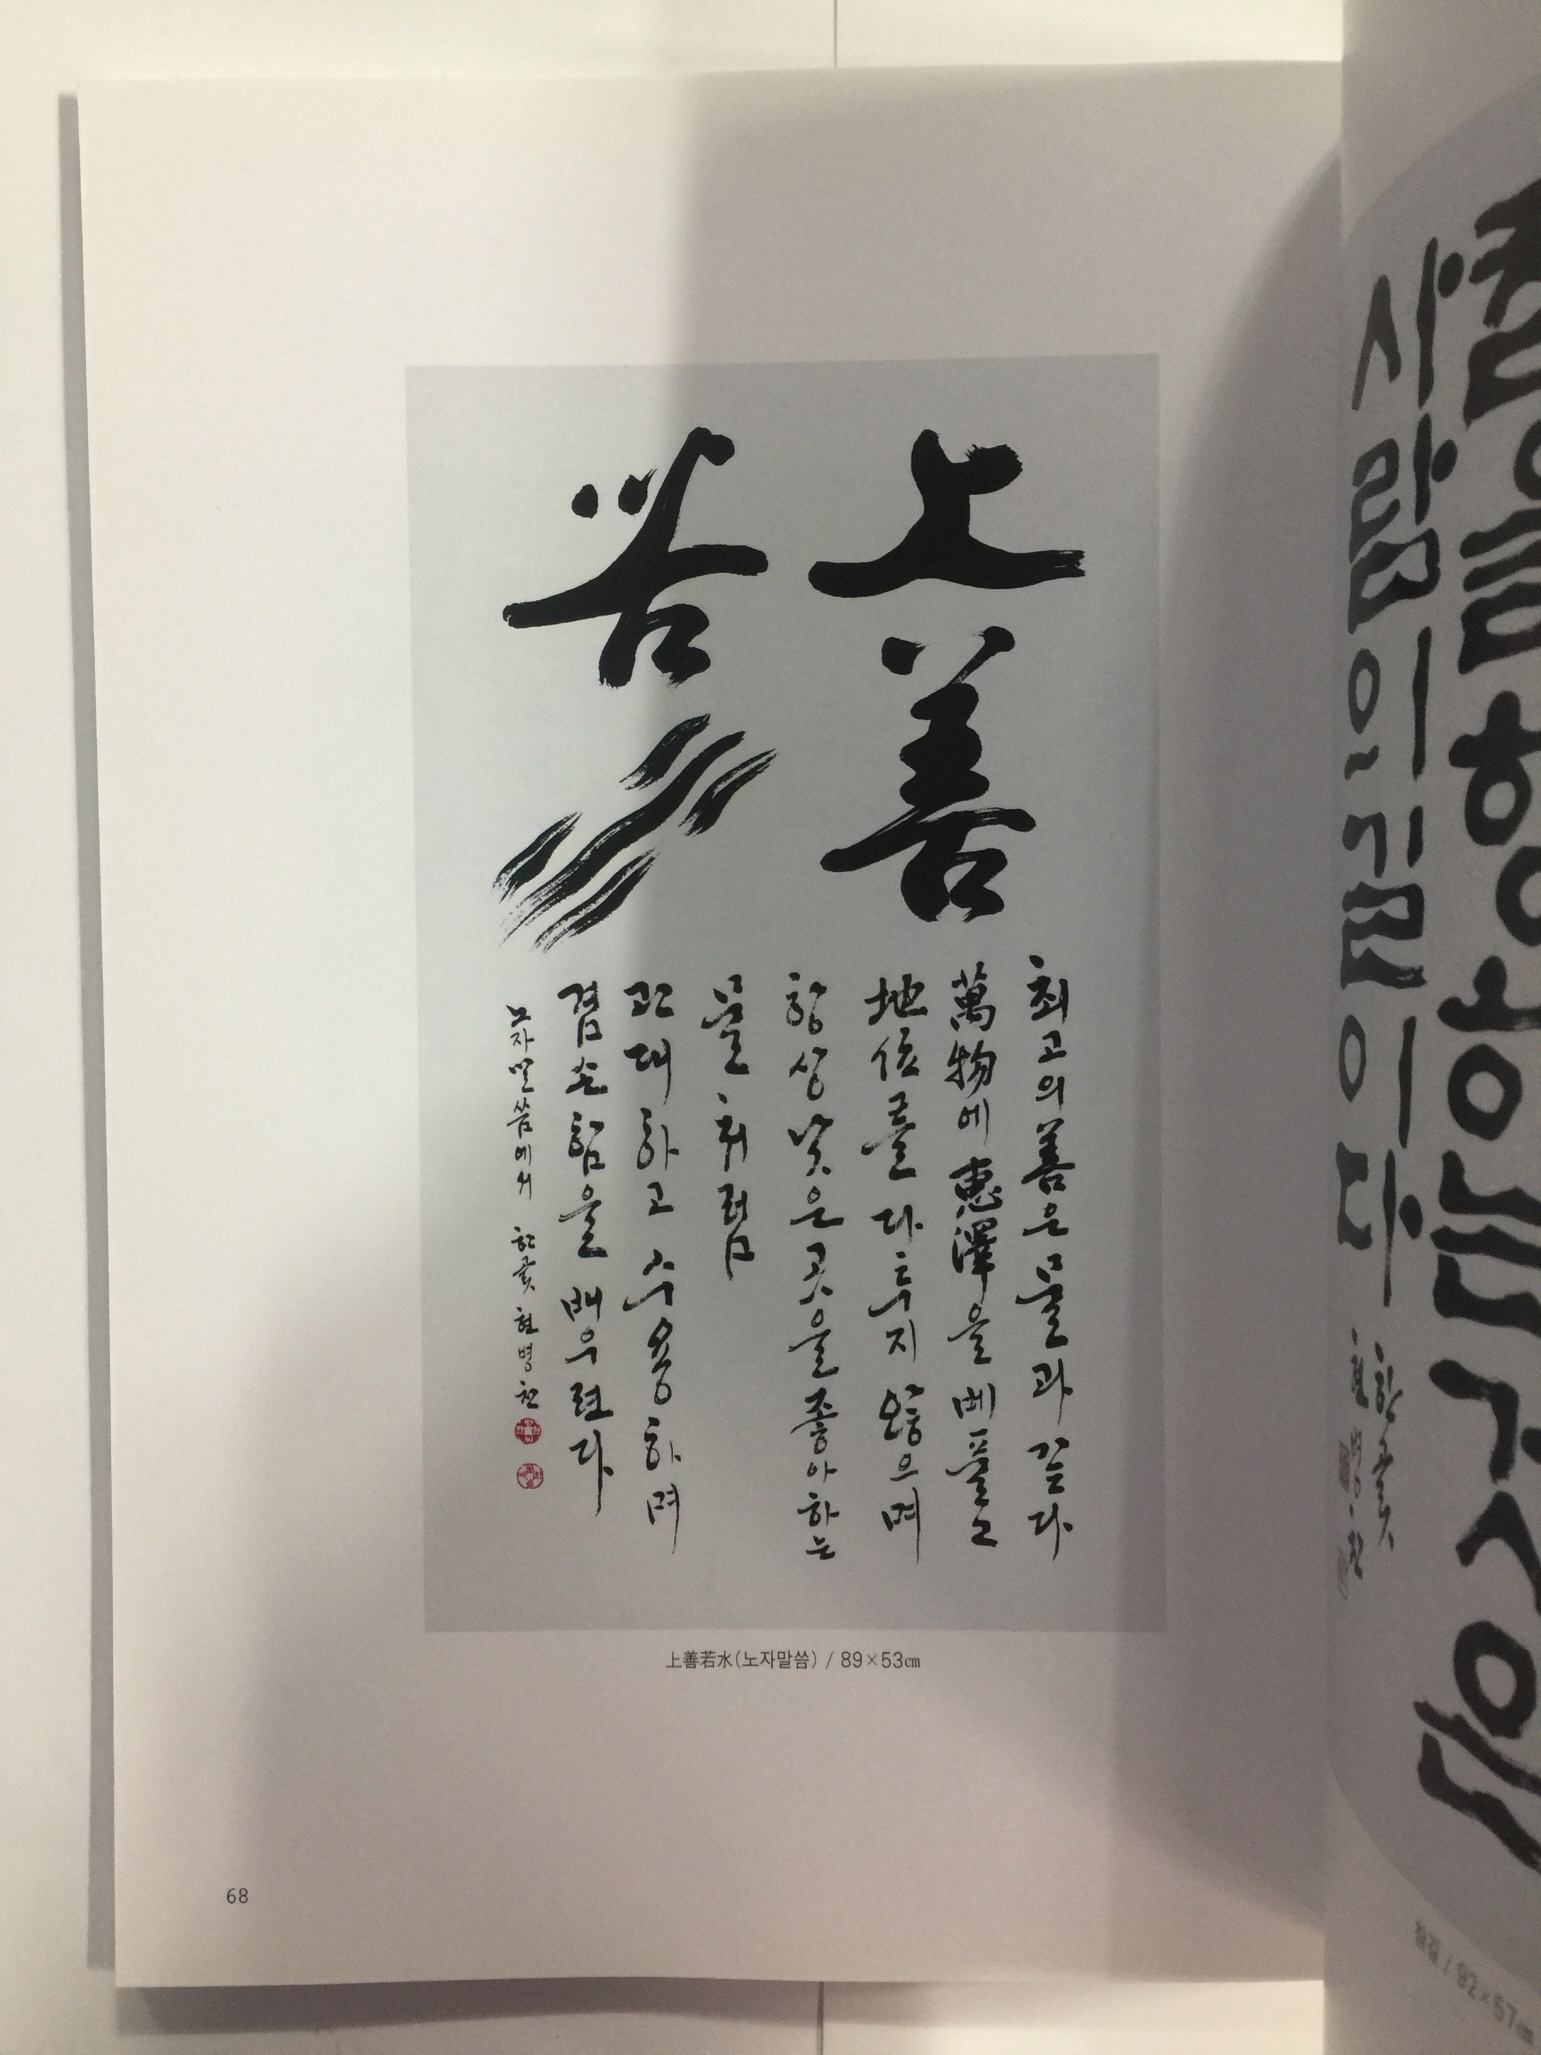 上善
若水
최고의 善은 물과 같다
萬物에 惠澤을 베풀고
地位를 다투지 않으며
항상 낮은 곳을 좋아하는
물처럼
관대하고 수용하며
겸손함을 배우련다
노자말씀에서 한곬 현병찬
上善若水(노자말씀) / 89×53㎝
68
사람의 길이다
한곬
현병찬
/ 92×57㎝